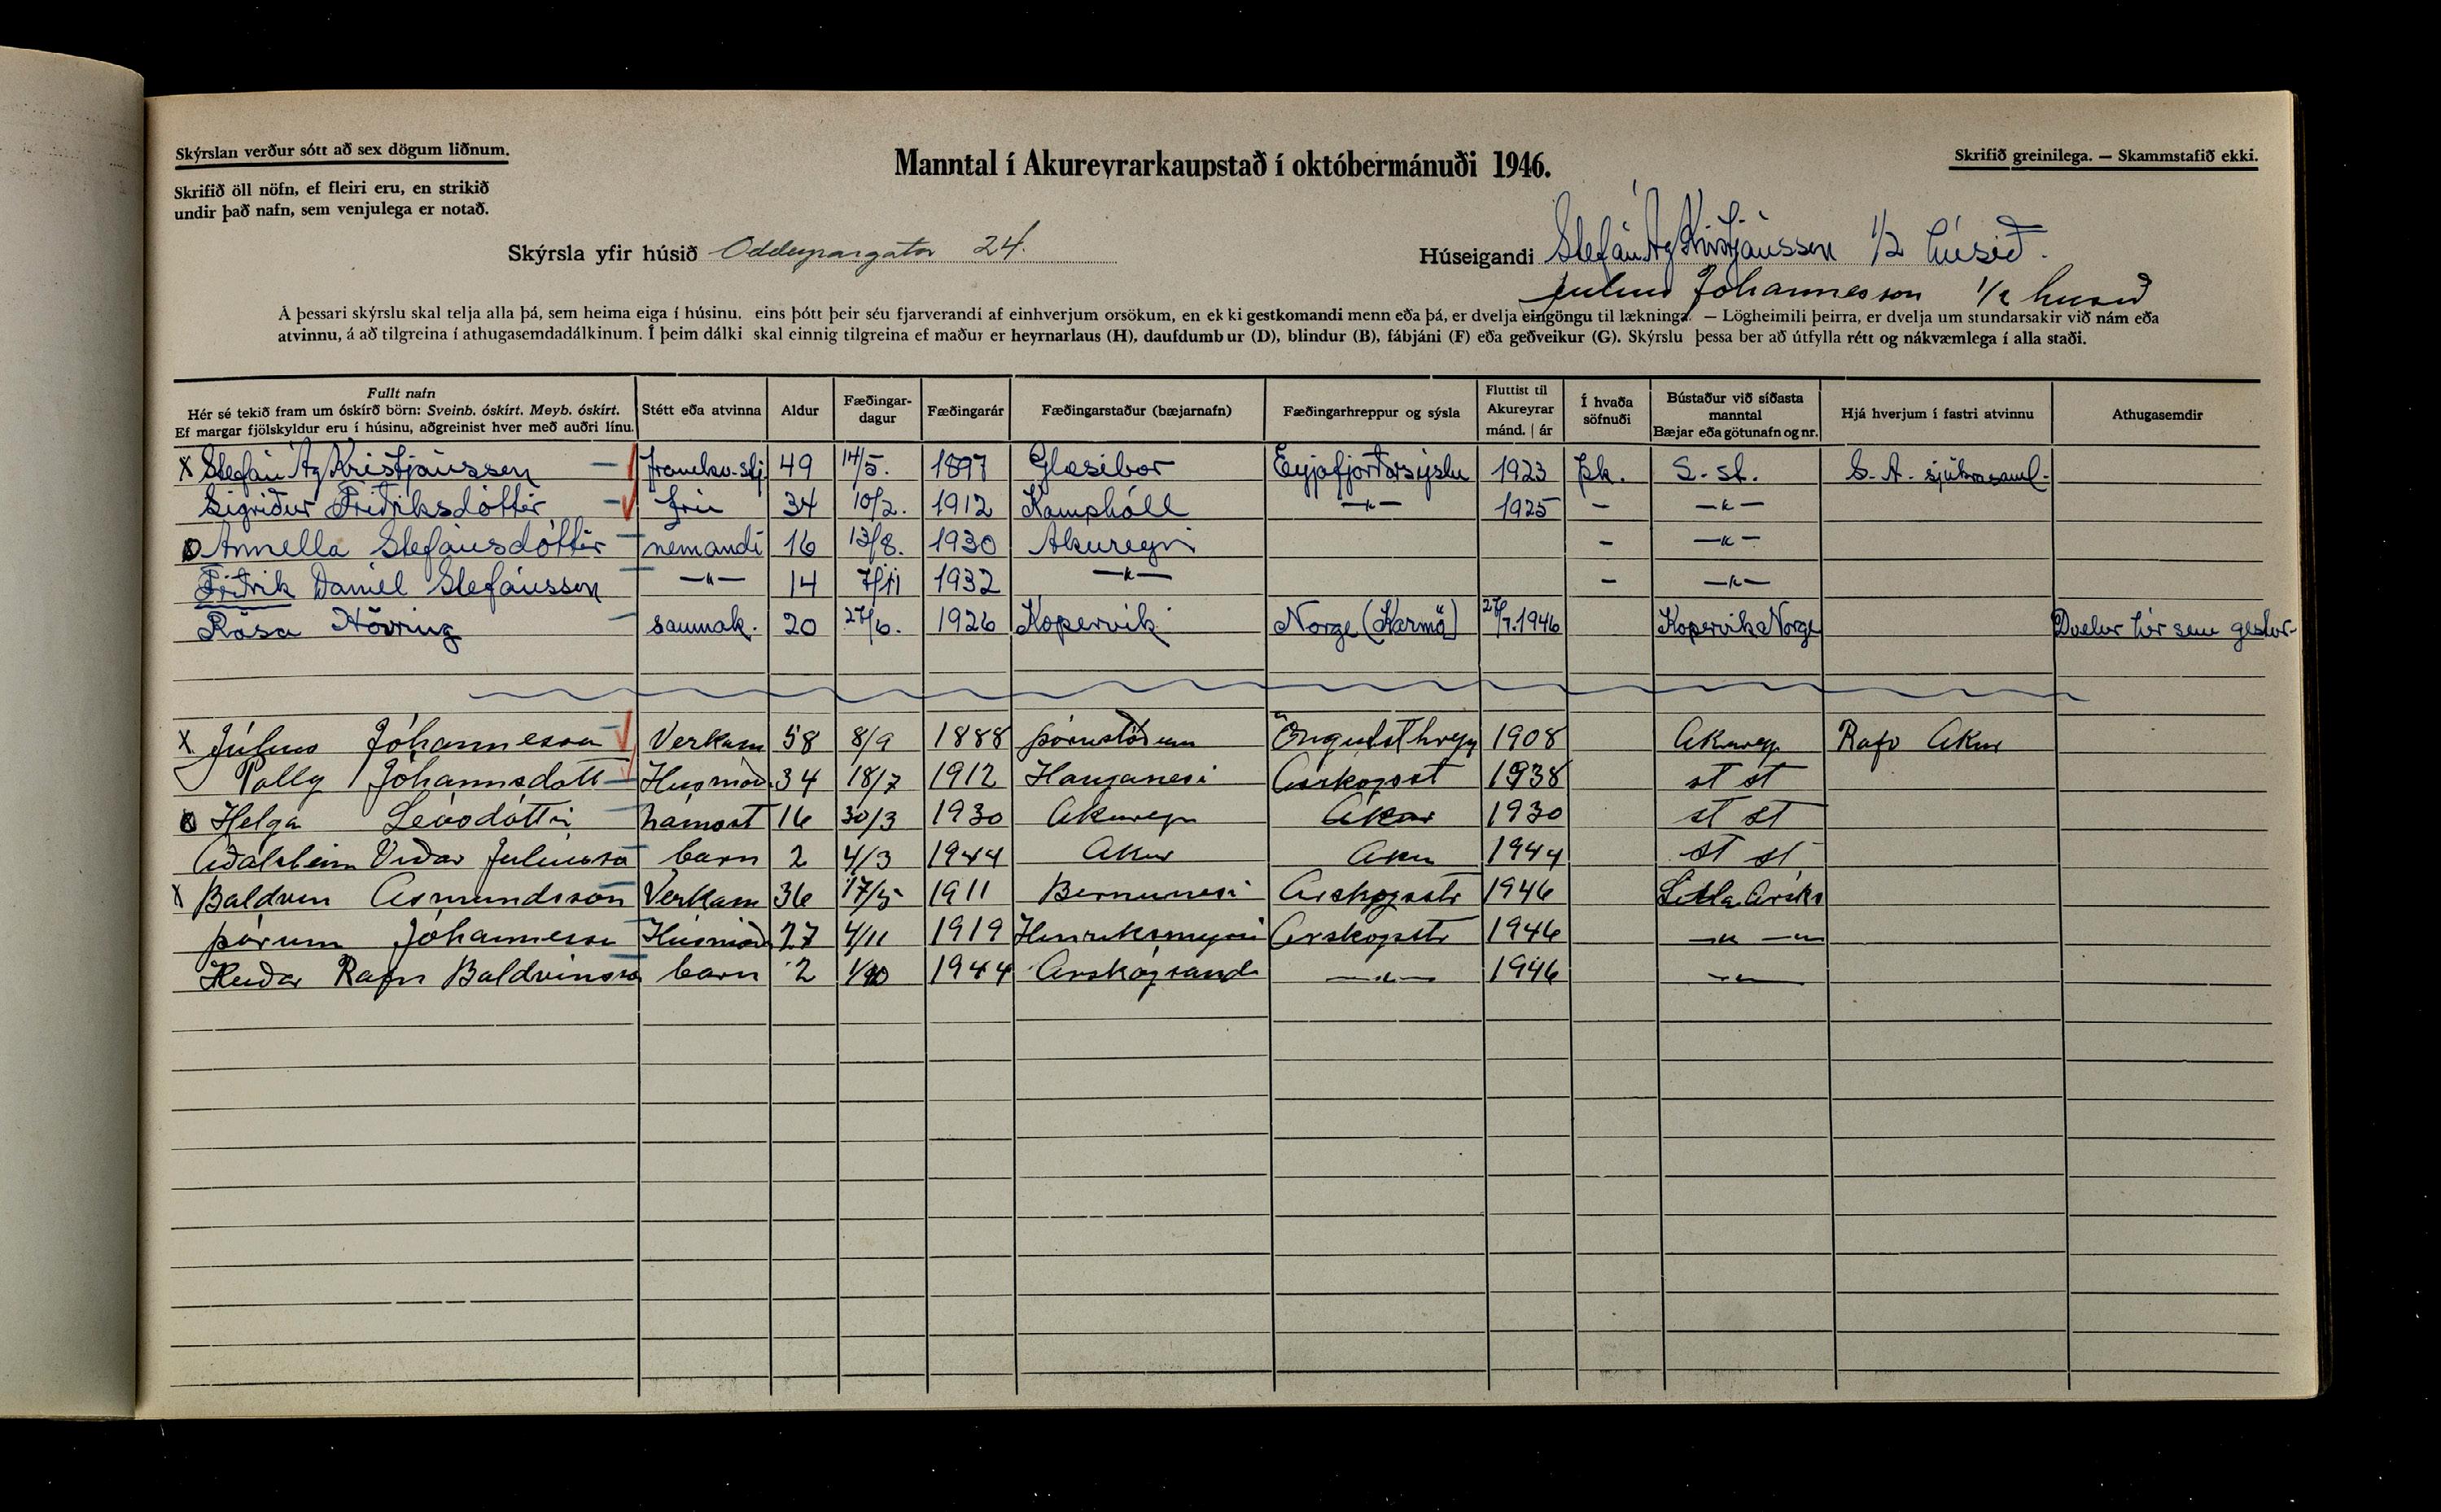 Skýrslan verður sótt að sex dögum liðnum.
Skrifið öll nöfn, ef fleiri eru, en strikið
undir það nafn, sem venjulega er notað.
Manntal í Akureyrarkaupstað í októbermánuði 1946.
Skrifið greinilega. — Skammstafið ekki.
Skýrsla yfir húsið Oddeyrargata 24.
Húseigandi Stefán Ag Kristjánsson 1/2 húsið.
Júlíus Jóhannesson 1/2 husið
Á þessari skýrslu skal telja alla þá, sem heima eiga í húsinu. eins þótt þeir séu fjarverandi af einhverjum orsökum, en ek ki gestkomandi menn eða þá, er dvelja eingöngu til lækninga. — Lögheimili þeirra, er dvelja um stundarsakir við nám eða
atvinnu, á að tilgreina í athugasemdadálkinum. Í þeim dálki skal einnig tilgreina ef maður er heyrnarlaus (H), daufdumb ur (D), blindur (B), fábjáni (F) eða geðveikur (G). Skýrslu þessa ber að útfylla rétt og nákvæmlega í alla staði.
Fullt nafn
Hér sé tekið fram um óskírð börn: Sveinb. óskírt. Meyb. óskírt.
Ef margar fjölskyldur eru í húsinu, aðgreinist hver með auðri línu.
Stétt eða atvinna
Aldur
Fæðingar-
dagur
Fæðingarár
Fæðingarstaður (bæjarnafn)
Fæðingarhreppur og sýsla
Fluttist til
Akureyrar
mánd. | ár
Í hvaða
söfnuði
Bústaður við síðasta
manntal
Bæjar eða götunafn og nr.
Hjá hverjum í fastri atvinnu
Athugasemdir
X Stefán Ag Kristjánsson — framkv.stj 49 14/5. 1897 Glæsibær Eyjafjarðarsýslu 1923 Þk. S. st. S. A. sjúkrasaml.
Sigríður Friðriksdóttir — frú 34 10/2. 1912 Kamphóll —"— 1925 — —"—
Annella Stefánsdóttir — nemandi 16 13/8. 1930 Akureyri — —"—
Friðrik Daníel Stefánsson —"— 14 7/11 1932 —"— — —"—
Rósa Hövring — saumak. 20 27/6. 1926 Kopervik Norge (Karmö) 27/7.1946 Kopervik Norge Dvelur hér sem gestur
X Júlíus Jóhannesson Verkam 58 8/9 1888 Þórustöðum Öngulsthrepp 1908 Akurey Rafv Akur
Polly Jóhannsdótt Húsmóð 34 18/7 1912 Hauganesi Árskógsst 1938 st st
Helga Levódóttir námsst 16 30/3 1930 Akurey Akur 1930 st st
Aðalsteinn Viðar Júlíusso barn 2 4/3 1944 Akur Akur 1944 st st
X Baldvin Ásmundsson Verkam 36 17/5 1911 Árskógsstr 1946 Litla Árskó
Þórunn Jóhannesso Húsmóð 27 4/11 1919 Árskógsstr 1946 —"— —"—
Heiðar Rafn Baldvinsso barn 2 1/10 1944 Árskógsandi —"— 1946 —"—